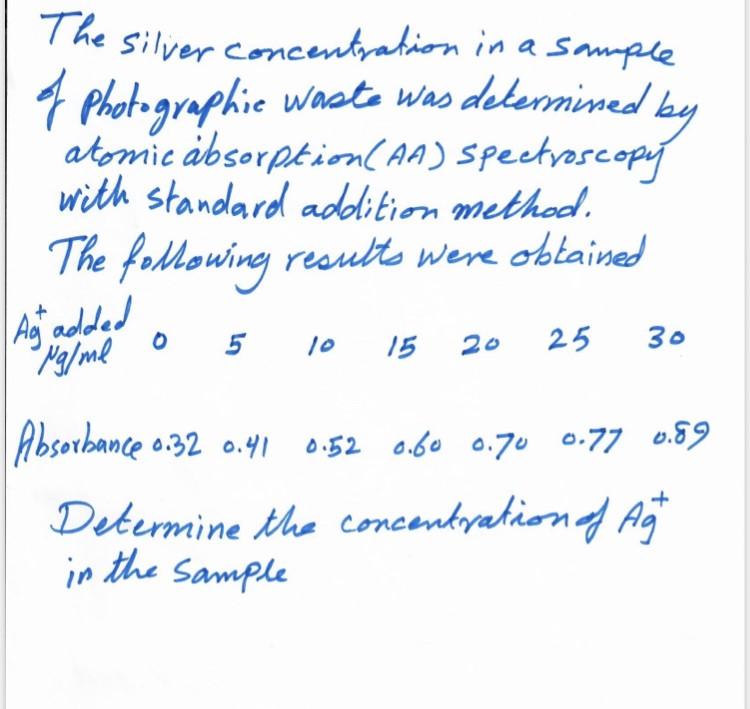 The silver concentration in a sample
of photographic waste was determined by
atomic absorption (AA) spectroscopy
with standard addition method.
The following results were obtained
Ag⁺ added
µg/ml 0 5 10 15 20 25 30
Absorbance 0.32 0.41 0.52 0.60 0.70 0.77 0.89
Determine the concentration of Ag⁺
in the sample